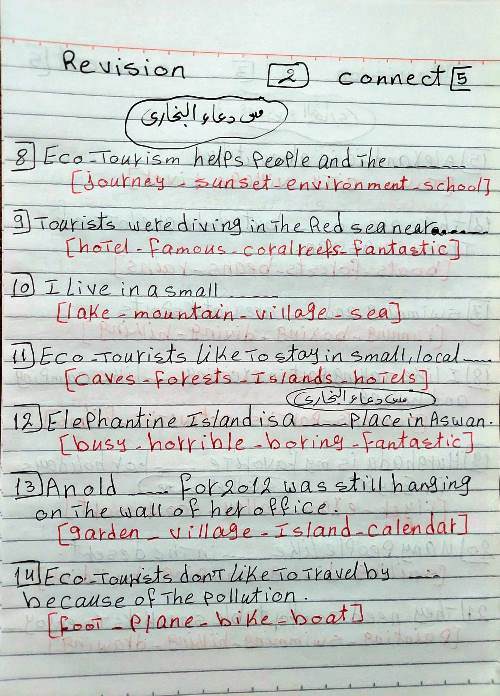 Revision 2 connect 5
مس دعاء البخارى
8 Eco-Tourism helps People and The ........
[journey - sunset - environment - school]
9 Tourists were diving in The Red sea near........
[hotel - famous - coral reefs - fantastic]
10 I live in a small ........
[lake - mountain - village - sea]
11 Eco-Tourists like To stay in small, local ........
[caves - forests - Islands - hotels]
مس دعاء البخارى
12 Elephantine Island is a ........ place in Aswan.
[busy - horrible - boring - fantastic]
13 An old ........ for 2012 was still hanging
on The wall of her office.
[garden - village - Island - calendar]
14 Eco-Tourists don't like To Travel by ........
because of The pollution.
[foot - plane - bike - boat]